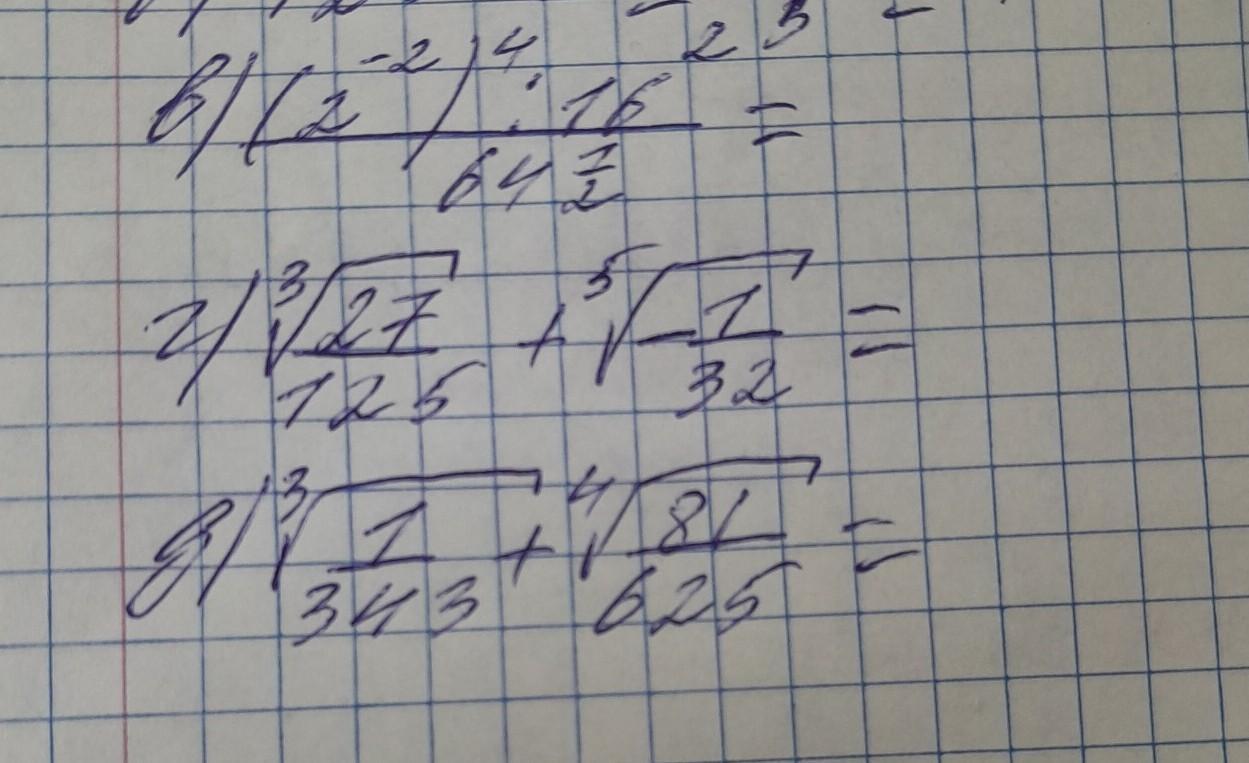 в) (2^-2)^4 : 16 / 64^1/2 =
г) ³√27/125 + ⁵√-1/32 =
д) ³√1/343 + ⁴√81/625 =